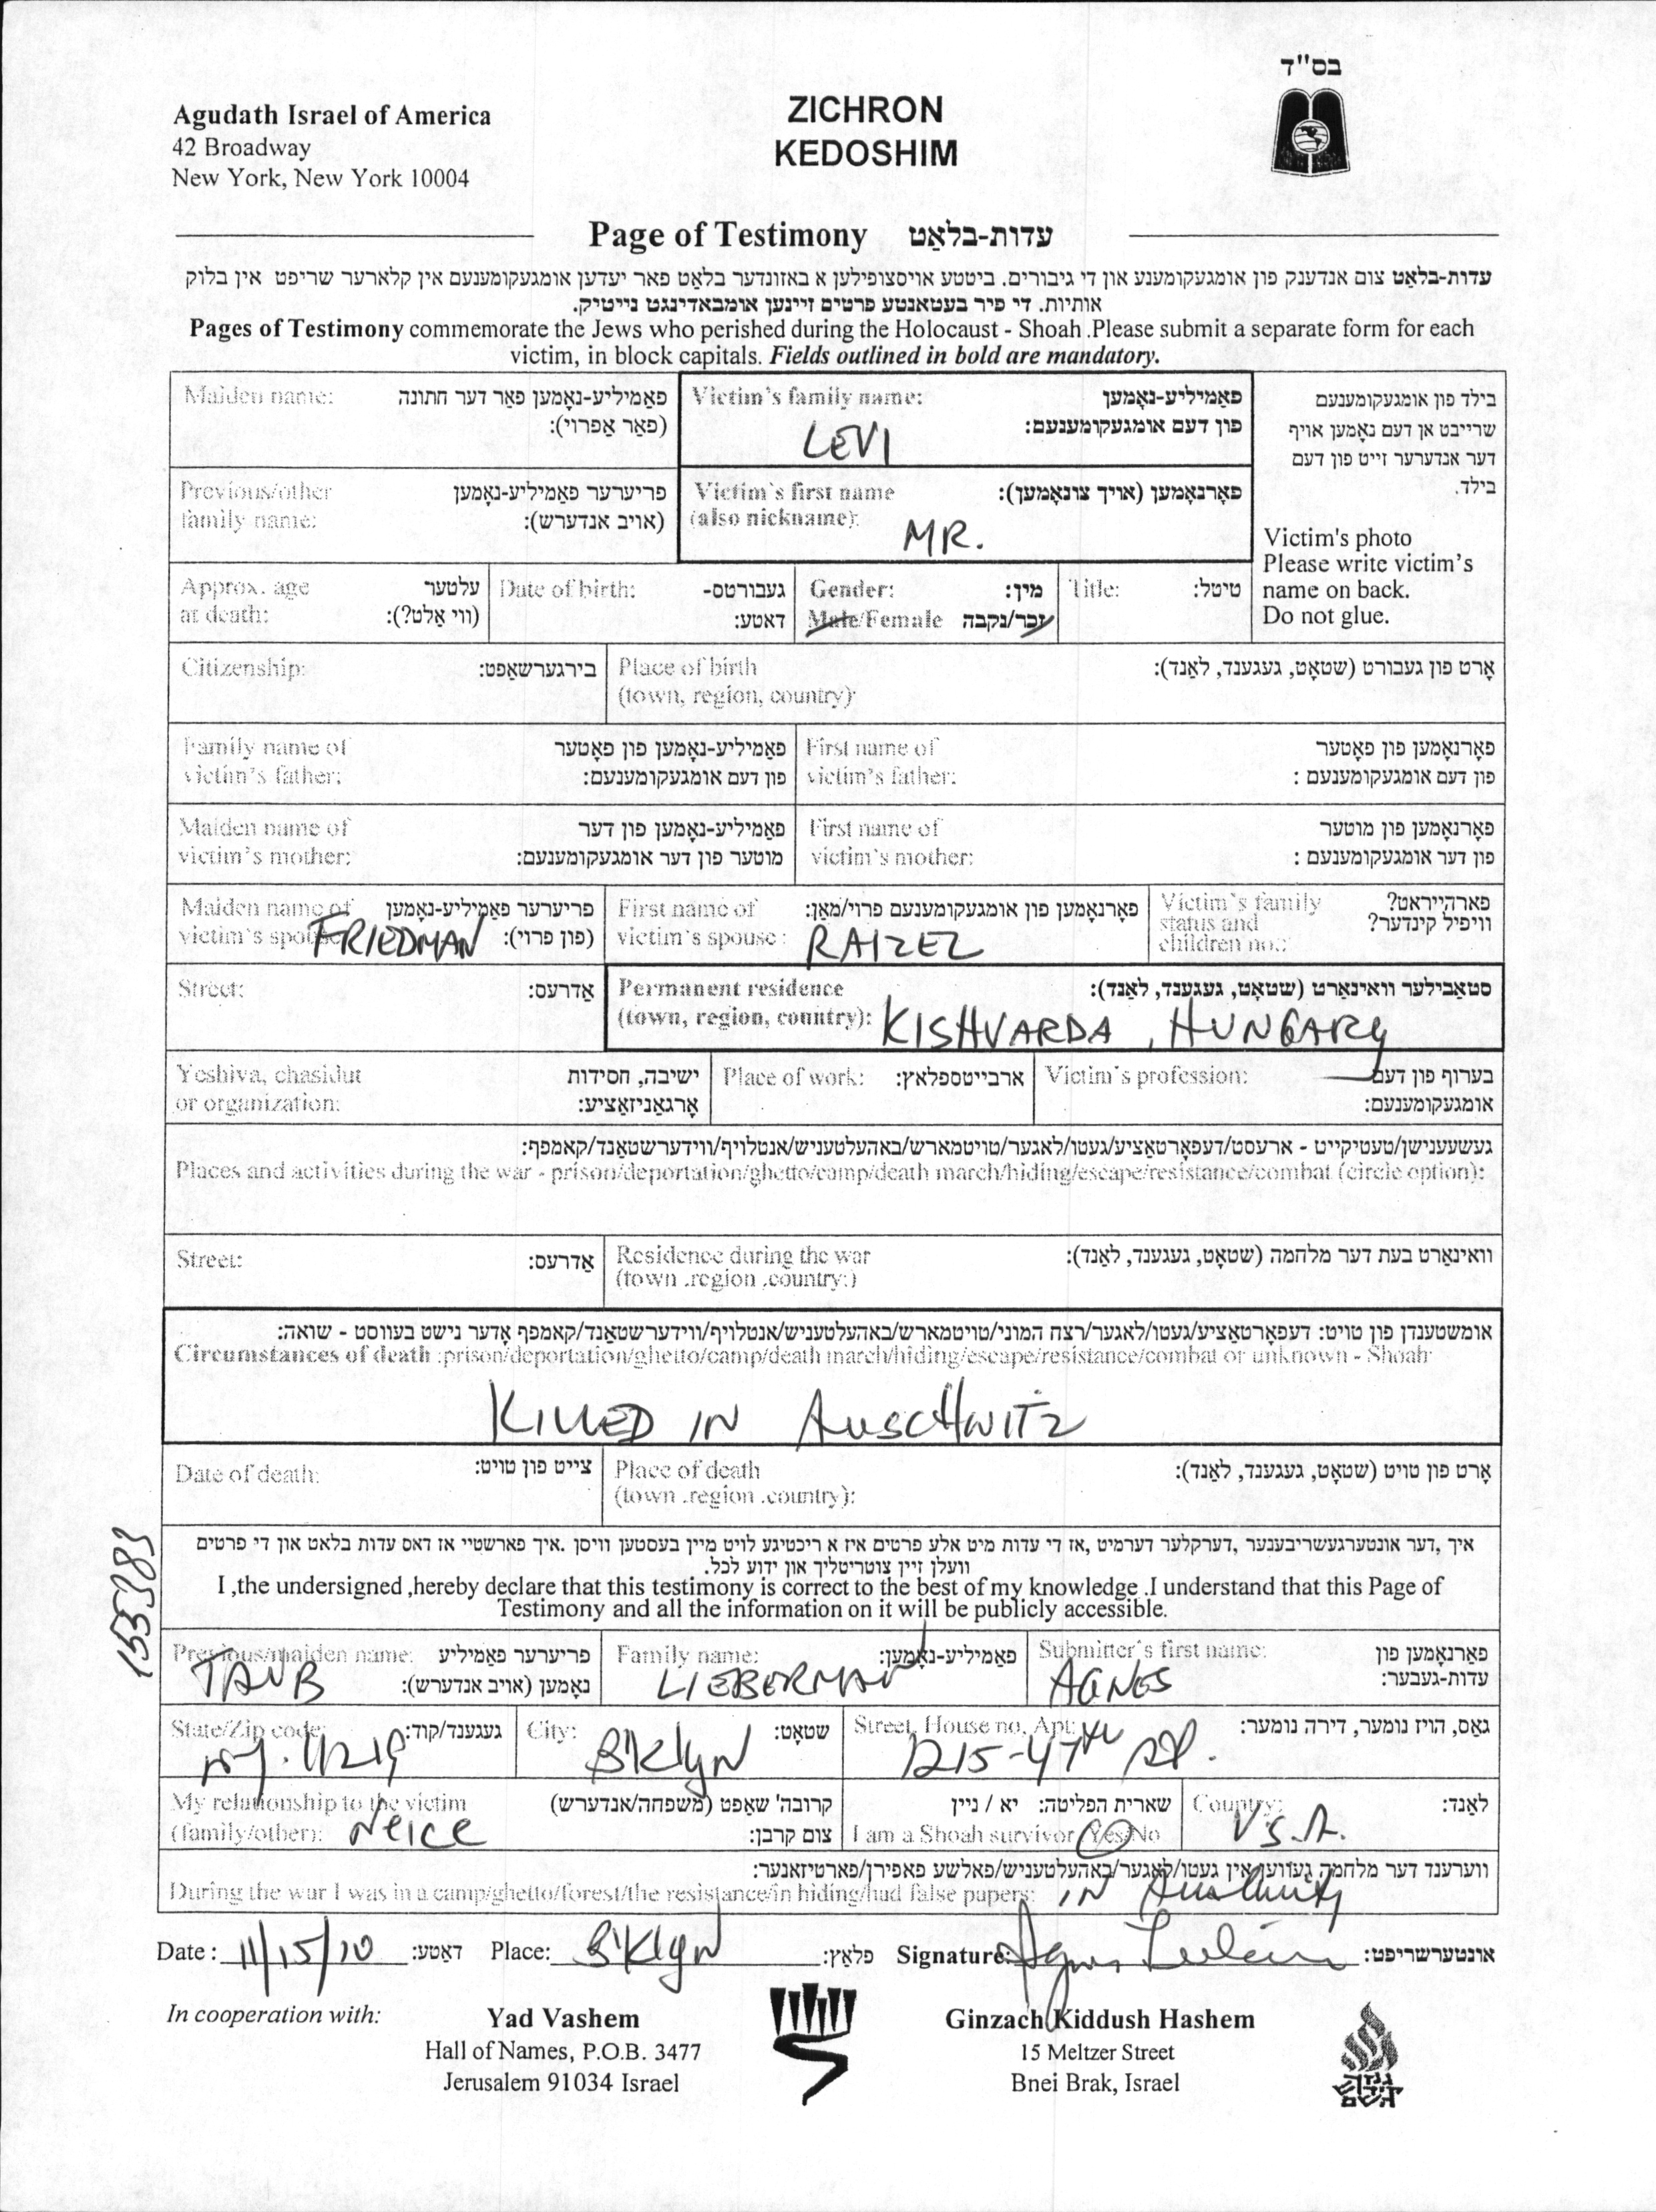 בס"ד
Agudath Israel of America
42 Broadway
New York, New York 10004
ZICHRON
KEDOSHIM
Page of Testimony עדות-בלאַט
עדות-בלאַט צום אנדענק פון אומגעקומענע און די גיבורים. ביטטע אויסצופילען א באזונדער בלאַט פאר יעדען אומגעקומענעם אין קלארער שריפט אין בלוק
אותיות. די פיר בעטאנטע פרטים זיינען אומבאדינגט נייטיק.
Pages of Testimony commemorate the Jews who perished during the Holocaust - Shoah .Please submit a separate form for each
victim, in block capitals. Fields outlined in bold are mandatory.
Maiden name: פאַמיליע-נאָמען פאַר דער חתונה
(פאַר אַפרוי):
Victim's family name: פאַמיליע-נאָמען
פון דעם אומגעקומענעם:
LEVI
בילד פון אומגעקומענעם
שרייבט אן דעם נאָמען אויף
דער אנדערער זייט פון דעם
בילד.
Victim's photo
Please write victim's
name on back.
Do not glue.
Previous/other פריערער פאַמיליע-נאָמען
family name: (אויב אנדערש):
Victim's first name פאָרנאָמען (אויך צונאָמען):
(also nickname):
MR.
Approx. age עלטער
at death: (ווי אַלט?):
Date of birth: געבורטס-
דאטע:
Gender: מין:
Male/Female זכר/נקבה
Title: טיטל:
Citizenship: בירגערשאַפט:
Place of birth אָרט פון געבורט (שטאָט, געגענד, לאַנד):
(town, region, country):
Family name of פאַמיליע-נאָמען פון פאָטער
victim's father: פון דעם אומגעקומענעם:
First name of פאָרנאָמען פון פאָטער
victim's father: פון דעם אומגעקומענעם :
Maiden name of פאַמיליע-נאָמען פון דער
victim's mother: מוטער פון דער אומגעקומענעם:
First name of פאָרנאָמען פון מוטער
victim's mother: פון דער אומגעקומענעם :
Maiden name of פריערער פאַמיליע-נאָמען
victim's spouse (פון פרוי):
FRIEDMAN
First name of פאָרנאָמען פון אומגעקומענעם פרוי/מאַן:
victim's spouse :
RAIZEL
Victim's family פארהייראט?
status and וויפיל קינדער?
children no.:
Street: אַדרעס:
Permanent residence סטאַבילער וואינאַרט (שטאָט, געגענד, לאַנד):
(town, region, country):
KISHVARDA , HUNGARY
Yeshiva, chasidut ישיבה, חסידות
or organization: אָרגאַניזאַציע:
Place of work: ארבייטספלאץ:
Victim's profession: בערוף פון דעם
אומגעקומענעם:
געשעענישן/טעטיקייט - ארעסט/דעפאָרטאַציע/געטו/לאגער/טויטמארש/באהעלטעניש/אנטלויף/ווידערשטאַנד/קאמפף:
Places and activities during the war - prison/deportation/ghetto/camp/death march/hiding/escape/resistance/combat (circle option):
Street: אַדרעס:
Residence during the war וואינאַרט בעת דער מלחמה (שטאָט, געגענד, לאַנד):
(town .region .country:)
אומשטענדן פון טויט: דעפאָרטאַציע/געטו/לאגער/רצח המוני/טויטמארש/באהעלטעניש/אנטלויף/ווידערשטאַנד/קאמפף אָדער נישט בעווסט - שואה:
Circumstances of death :prison/deportation/ghetto/camp/death march/hiding/escape/resistance/combat or unknown - Shoah
KILLED IN AUSCHWITZ
Date of death: צייט פון טויט:
Place of death אָרט פון טויט (שטאָט, געגענד, לאַנד):
(town .region .country):
155383
איך ,דער אונטערגעשריבענער ,דערקלער דערמיט ,אז די עדות מיט אלע פרטים איז א ריכטיגע לויט מיין בעסטען וויסן .איך פארשטיי אז דאס עדות בלאט און די פרטים
וועלן זיין צוטריטליך און ידוע לכל.
I ,the undersigned ,hereby declare that this testimony is correct to the best of my knowledge .I understand that this Page of
Testimony and all the information on it will be publicly accessible.
Previous/maiden name: פריערער פאַמיליע
נאָמען (אויב אנדערש):
TAUB
Family name: פאַמיליע-נאָמען:
LIEBERMAN
Submitter's first name: פאַרנאָמען פון
עדות-געבער:
AGNES
State/Zip code: געגענד/קוד:
N.Y. 11219
City: שטאָט:
B'KlyN
Street, House no, Apt: גאַס, הויז נומער, דירה נומער:
1215-47th
My relationship to the victim קרובה' שאַפט (משפחה/אנדערש)
(family/other): צום קרבן:
Neice
שארית הפליטה: יא / ניין
I am a Shoah survivor Yes/No
Country: לאַנד:
U.S.A.
ווערענד דער מלחמה געווען אין געטו/לאַגער/באַהעלטעניש/פאלשע פאפירן/פארטיזאנער:
During the war I was in a camp/ghetto/forest/the resistance/in hiding/had false papers: IN Auschwitz
Date : 11/15/10 דאַטע: Place: B'KlyN פלאַץ: Signature: Agnes אונטערשריפט:
In cooperation with:
Yad Vashem
Hall of Names, P.O.B. 3477
Jerusalem 91034 Israel
Ginzach Kiddush Hashem
15 Meltzer Street
Bnei Brak, Israel
גנזך
קידוש
השם